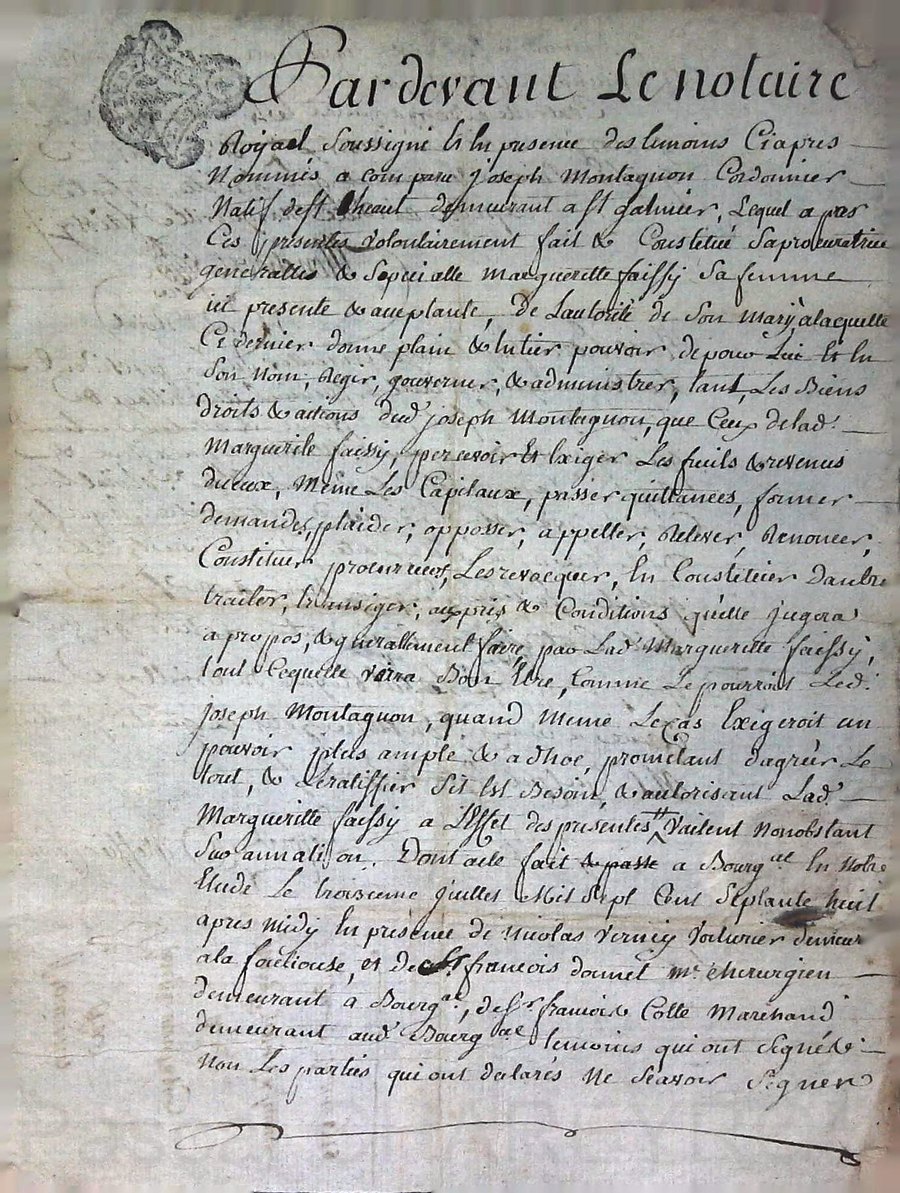 Pardevant Le notaire
Royael Soussigné Et En presence des temoins Ciapres
Nommés a comparu joseph Montagnon Cordonnier
Natif de St heant demeurant a St galmier, Lequel a pas
Ces presentes volontairement fait & Constitué Saprocuratrice
generalle & Speciалle Margueritte faissy Sa femme
ici presente & aceptante, de Lautorité de Son Mary, alaquelle
Ce dernier donne plain & Entier pouvoir de pour Lui Et En
Son Nom, Regir, gouverner, & administrer, tant Les Biens
droits & actions dud. joseph Montagnon, que Ceux de lad.
Marguerite faissy, percevoir Et Exiger Les fruits & revenus
diceux, Même Les Capitaux, passer quittances, former
demandes, plaider, opposser, appeller, Relever, Renoncer,
Constituer procureurs, Les revocquer, En Constituer dautre
traiter, transiger, aux prix & Conditions qu'elle jugera
apropos, & generallement faire, par Lad. Margueritte faissy,
tout Cequelle verra Bon Etre, Comme Le pourroit Led.
joseph Montagnon, quand Meme Le Cas Exigeroit un
pouvoir plus ample & adhoc, prometant d'agréer Le
tout, & Le ratiffier Sil Est Besoin, & autorisant Lad.
Marguerite faissy a L'Effet des presentes vailent Nonobstant
Surannation. Dont acte fait & passé a Bourg al En Notre
Etude Le troisieme juillet Mil Sept Cent Septante huit
apres Midy En présence de Nicolas Verney Voiturier demeur
ala fouliouse, et de Sr françois donnet Me. chirurgien
demeurant à Bourg al, de Sr francois Colle Marchand
demeurant aud. Bourg al temoins qui ont Signé &
Non Les parties qui ont declarés Ne Scavoir Signer